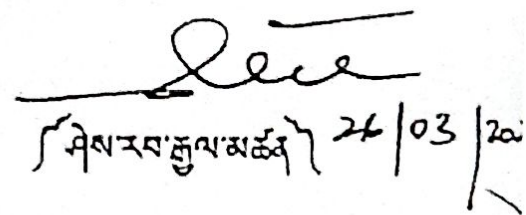 (ཤེས་རབ་རྒྱལ་མཚན) 26/03/20